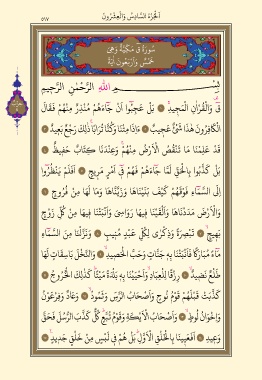 الجزء السادس والعشرون
٥١٧
سورة ق مكية وهي
خمس وأربعون آية
بِسْمِ اللّٰهِ الرَّحْمٰنِ الرَّحِيمِ
قٓ وَالْقُرْاٰنِ الْمَجِيدِ بَلْ عَجِبُٓوا اَنْ جَٓاءَهُمْ مُنْذِرٌ مِنْهُمْ فَقَالَ
الْكَافِرُونَ هٰذَا شَيْءٌ عَجِيبٌ ءَاِذَا مِتْنَا وَكُنَّا تُرَابًا ذٰلِكَ رَجْعٌ بَعِيدٌ
قَدْ عَلِمْنَا مَا تَنْقُصُ الْاَرْضُ مِنْهُمْ وَعِنْدَنَا كِتَابٌ حَفِيظٌ
بَلْ كَذَّبُوا بِالْحَقِّ لَمَّا جَٓاءَهُمْ فَهُمْ فِٓي اَمْرٍ مَرِيجٍ اَفَلَمْ يَنْظُرُٓوا
اِلَى السَّمَٓاءِ فَوْقَهُمْ كَيْفَ بَنَيْنَاهَا وَزَيَّنَّاهَا وَمَا لَهَا مِنْ فُرُوجٍ
وَالْاَرْضَ مَدَدْنَاهَا وَاَلْقَيْنَا فِيهَا رَوَاسِيَ وَاَنْبَتْنَا فِيهَا مِنْ كُلِّ زَوْجٍ
بَهِيجٍ تَبْصِرَةً وَذِكْرٰى لِكُلِّ عَبْدٍ مُنِيبٍ وَنَزَّلْنَا مِنَ السَّمَٓاءِ
مَٓاءً مُبَارَكًا فَاَنْبَتْنَا بِهِ جَنَّاتٍ وَحَبَّ الْحَصِيدِ وَالنَّخْلَ بَاسِقَاتٍ لَهَا
طَلْعٌ نَضِيدٌ رِزْقًا لِلْعِبَادِ وَاَحْيَيْنَا بِهِ بَلْدَةً مَيْتًا كَذٰلِكَ الْخُرُوجُ
كَذَّبَتْ قَبْلَهُمْ قَوْمُ نُوحٍ وَاَصْحَابُ الرَّسِّ وَثَمُودُ وَعَادٌ وَفِرْعَوْنُ
وَاِخْوَانُ لُوطٍ وَاَصْحَابُ الْاَيْكَةِ وَقَوْمُ تُبَّعٍ كُلٌّ كَذَّبَ الرُّسُلَ فَحَقَّ
وَعِيدِ اَفَعَيِينَا بِالْخَلْقِ الْاَوَّلِ بَلْ هُمْ فِي لَبْسٍ مِنْ خَلْقٍ جَدِيدٍ